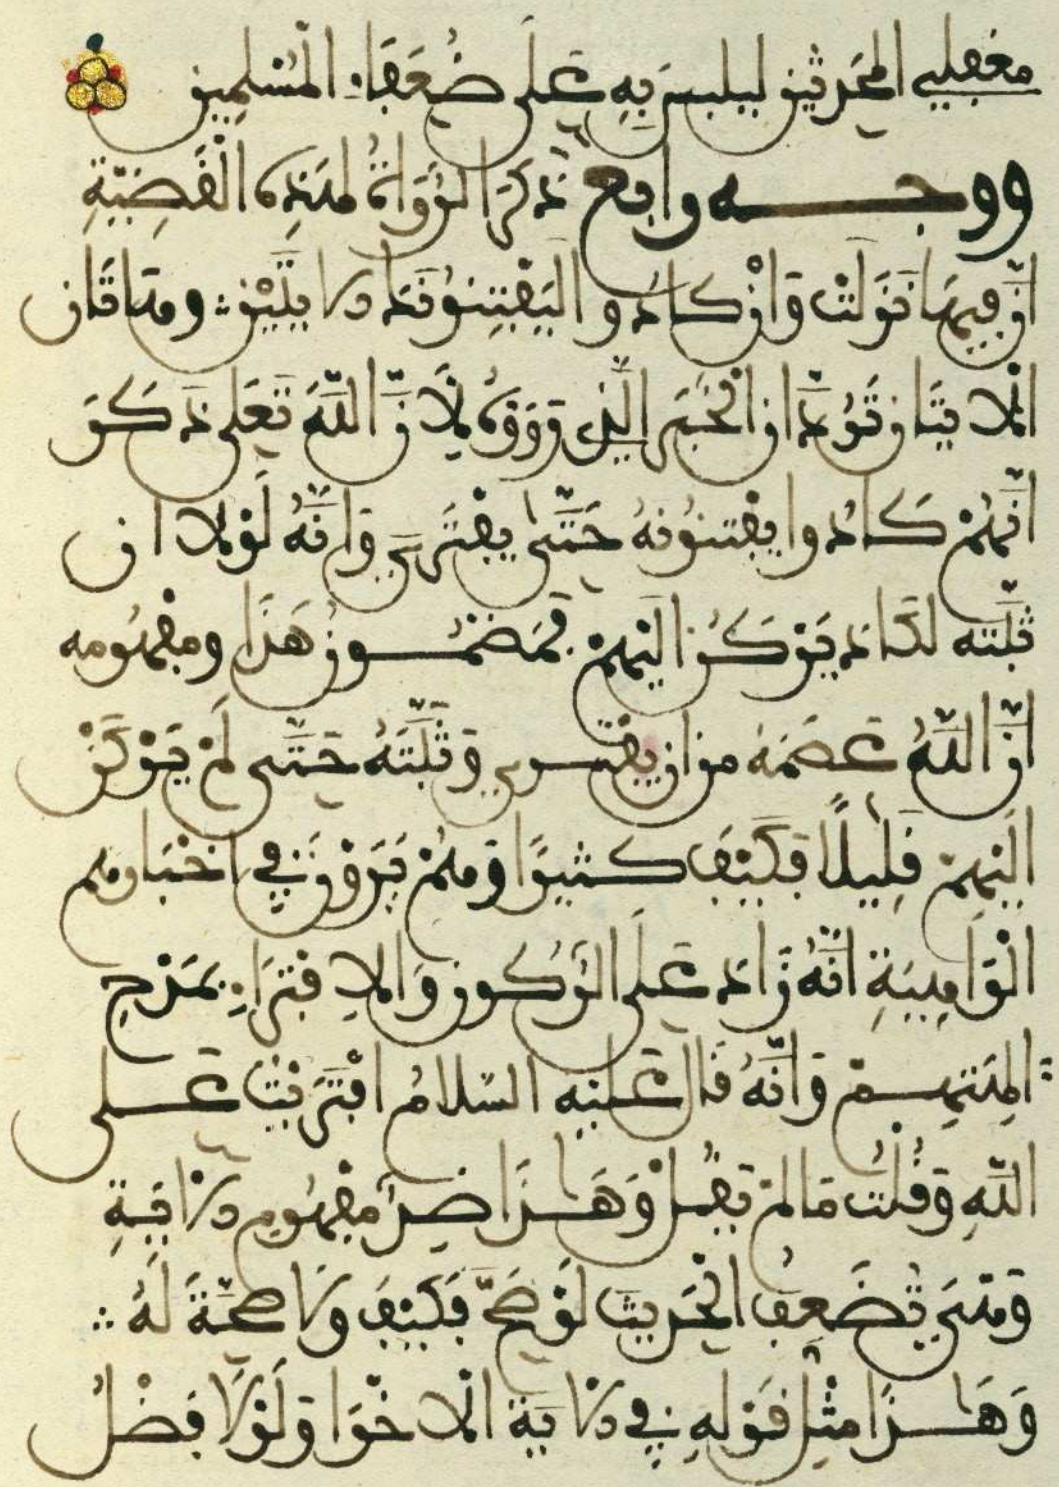 مغفلي المحدثين ليلبس به على ضُعَفَاءِ الْمُسْلِمِين
ووجه رابع ذَكَرَ الرُّوَاةُ لِهَذِهِ الْقَضِيَّةِ
أنَّ فِيهَا نَزَلَتْ وَإِنْ كَادُوا لَيَفْتِنُونَكَ الايَتَيْنِ ؞ وهَاتَانِ
الايَتَانِ تَرُدَّانِ الْخَبَرَ الَّذِي رَوَوْهُ لِأَنَّ اللَّهَ تَعَلَى ذَكَرَ
أَنَّهُمْ كَادُوا يفْتنُونَهُ حَتَّى يَفْتَرِيَ وَأَنَّهُ لَوْلا ان
ثَبَّتَهُ لكَادَ يَرْكَنُ الَيْهِمْ فَمَضْمُونُ هَذَا ومفْهُومه
أنَّ اللَّهَ عَصَمَهُ من ان يفْتَري وَثَبَّتَهُ حَتَّى لَمْ يَرْكَنْ
الَيْهِمْ قَلِيلًا فَكَيْفَ كثيرًا وَهُمْ يَرْوُونَ فِي أخْبَارهم
الْوَاهِيَةِ أنَّهُ زَادَ عَلَى الرُّكُونِ وَالافْتِرَاءِ بمَدْحِ
الِهَتهم وَأَنَّهُ قَالَ عَلَيْهِ السَّلَامُ افْتَرَيْتُ عَلى
اللَّهِ وَقُلْتُ مَا لمْ يَقُلْ وَهَذَا ضِدُّ مَفْهُومِ الايَةِ
وَهيَ تُضَعِّفُ الْحَدِيثَ لَوْ صَحَّ فَكَيْفَ ولا صِحَّةَ لَهُ ؞
وَهَذَا مثْل قَوْلِهِ فِي الايَةِ الاخْرَى وَلَوْلَا فَضْلُ